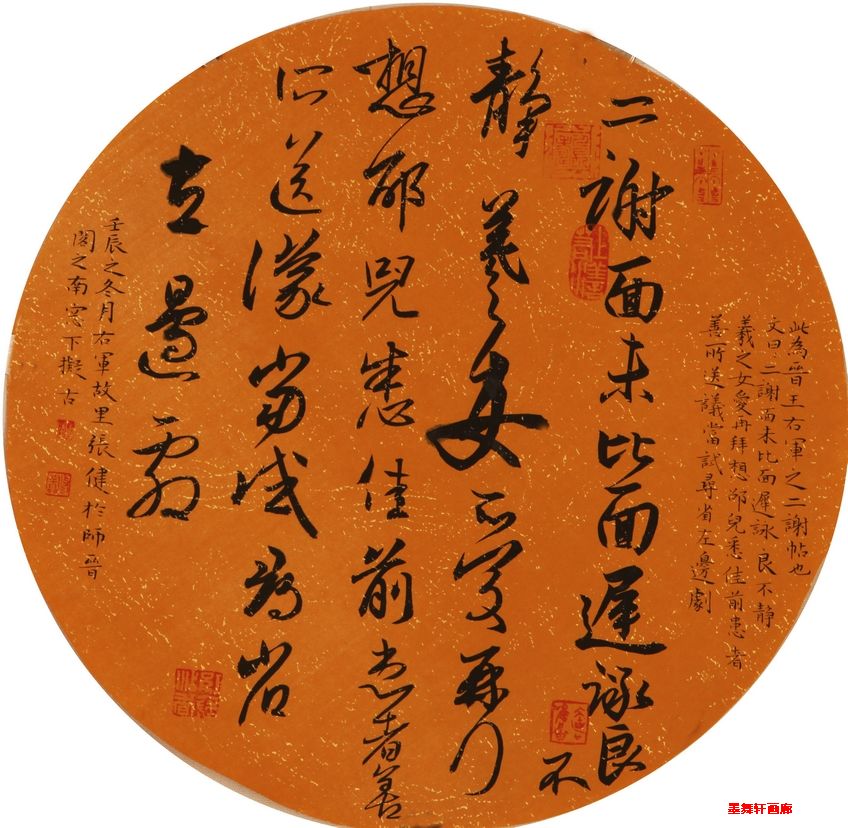 此為晉王右軍之二謝帖也
文曰：二謝面未比面遲詠良不靜
羲之女愛再拜想邰兒悉佳前患者
善所送議當試尋省左邊劇
二謝面未比面遲詠良不
靜羲之女愛再拜
想邰兒悉佳前患者善
所送議當試尋省
左邊劇
壬辰之冬月右軍故里張健於師晉
閣之南窓下擬古
墨舞轩画廊